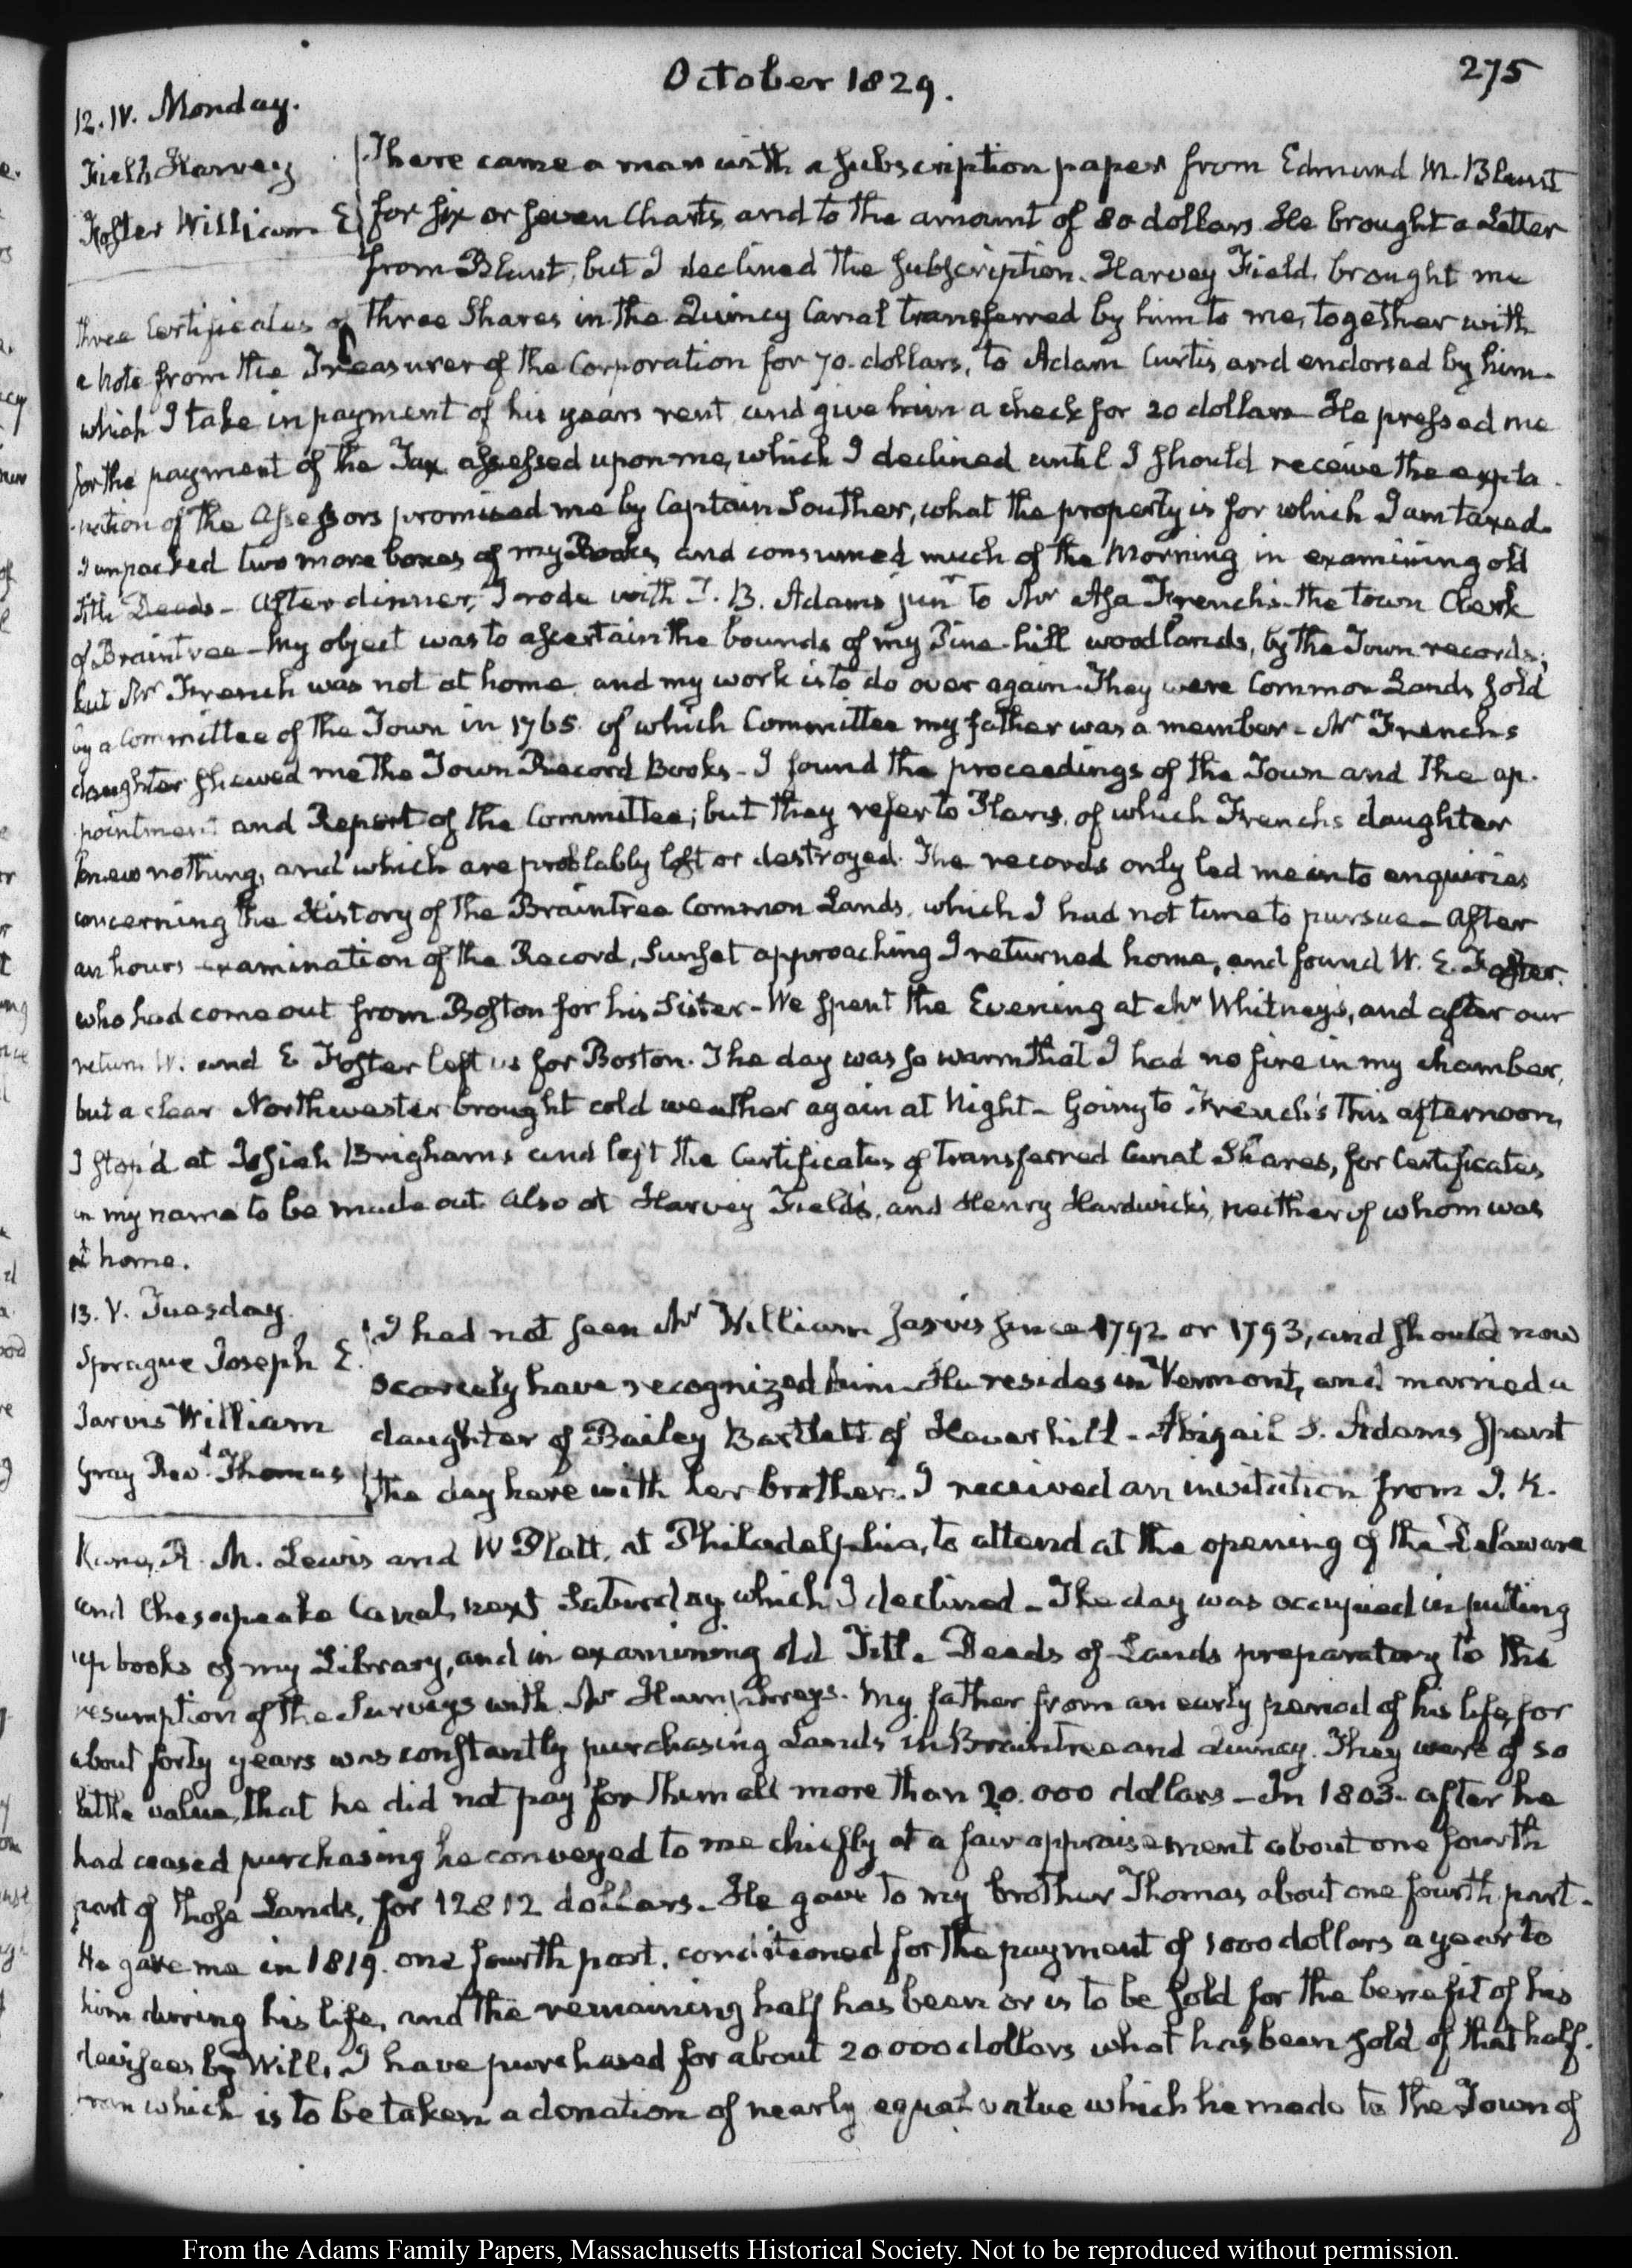 October 1829.
275
12. IV. Monday.
Field Harvey
Foster William E
There came a man with a subscription paper from Edmund M. Blunt
for six or seven Charts, and to the amount of 80 dollars. He brought a Letter
from Blunt, but I declined the subscription. Harvey Field, brought me
three Certificates of three Shares in the Quincy Canal transferred by him to me, together with
a note from the Treasurer of the Corporation for 70. dollars, to Adam Curtis and endorsed by him.
which I take in payment of his years rent and give him a check for 20 dollars He pressed me
for the payment of the Tax assessed upon me, which I declined until I should receive the expla-
-nation of the Assessors promised me by Captain Souther, what the property is for which I am taxed.
I unpacked two more boxes of my Books, and consumed much of the Morning in examining old
title Deeds- After dinner, I rode with T. B. Adams junr to Mr Asa French's the town Clerk
of Braintree- My object was to ascertain the bounds of my Pine-hill woodlands, by the Town records;
but Mr French was not at home and my work is to do over again. They were Common Lands sold
by a Committee of the Town in 1765. of which Committee my father was a member- Mr Frenchs
daughter shewed me the Town Record Books- I found the proceedings of the Town and the ap-
pointment and Report of the Committee; but they refer to Plans, of which Frenchs daughter
knew nothing, and which are problably lost or destroyed. The records only led me into enquiries
concerning the History of the Braintree Common Lands, which I had not time to pursue- After
an hours examination of the Record, Sunset approaching I returned home, and found W. E. Foster.
who had come out from Boston for his Sister- We spent the Evening at Mr Whitney's, and after our
return W. and E Foster left us for Boston. The day was so warm that I had no fire in my chamber,
but a clear Northwester brought cold weather again at Night- Going to French's this afternoon,
I stop'd at Josiah Brighams and left the Certificates of transferred Canal Shares, for Certificates
in my name to be made out. Also at Harvey Field's, and Henry Hardwick's, neither of whom was
at home.
13. V. Tuesday.
Sprague Joseph E.
Jarvis William
Gray Revd Thomas
I had not seen Mr William Jarvis since 1792 or 1793, and should now
scarcely have recognized him. He resides in Vermont, and married a
daughter of Bailey Bartlett of Haverhill- Abigail S. Adams spent
the day here with her brother. I received an invitation from J. K.
Kane, R. M. Lewis and W Platt, at Philadelphia, to attend at the opening of the Delaware
and Chesapeake Canal, next Saturday which I declined- The day was occupied in putting
up books of my Library, and in examining old Title Deeds of Lands preparatory to the
resumption of the Surveys with Mr Humphreys. My father from an early period of his life, for
about forty years was constantly purchasing Lands in Braintree and Quincy. They were of so
little value, that he did not pay for them all more than 20.000 dollars- In 1803. after he
had ceased purchasing he conveyed to me chiefly at a fair appraisement about one fourth
part of those Lands, for 12812 dollars- He gave to my brother Thomas about one fourth part-
He gave me in 1819. one fourth part, conditioned for the payment of 1000 dollars a year to
him during his life, and the remaining half has been or is to be sold for the benefit of his
devisees by Will. I have purchased for about 20000 dollars what has been sold of that half.
from which is to be taken a donation of nearly equal value which he made to the Town of
From the Adams Family Papers, Massachusetts Historical Society. Not to be reproduced without permission.